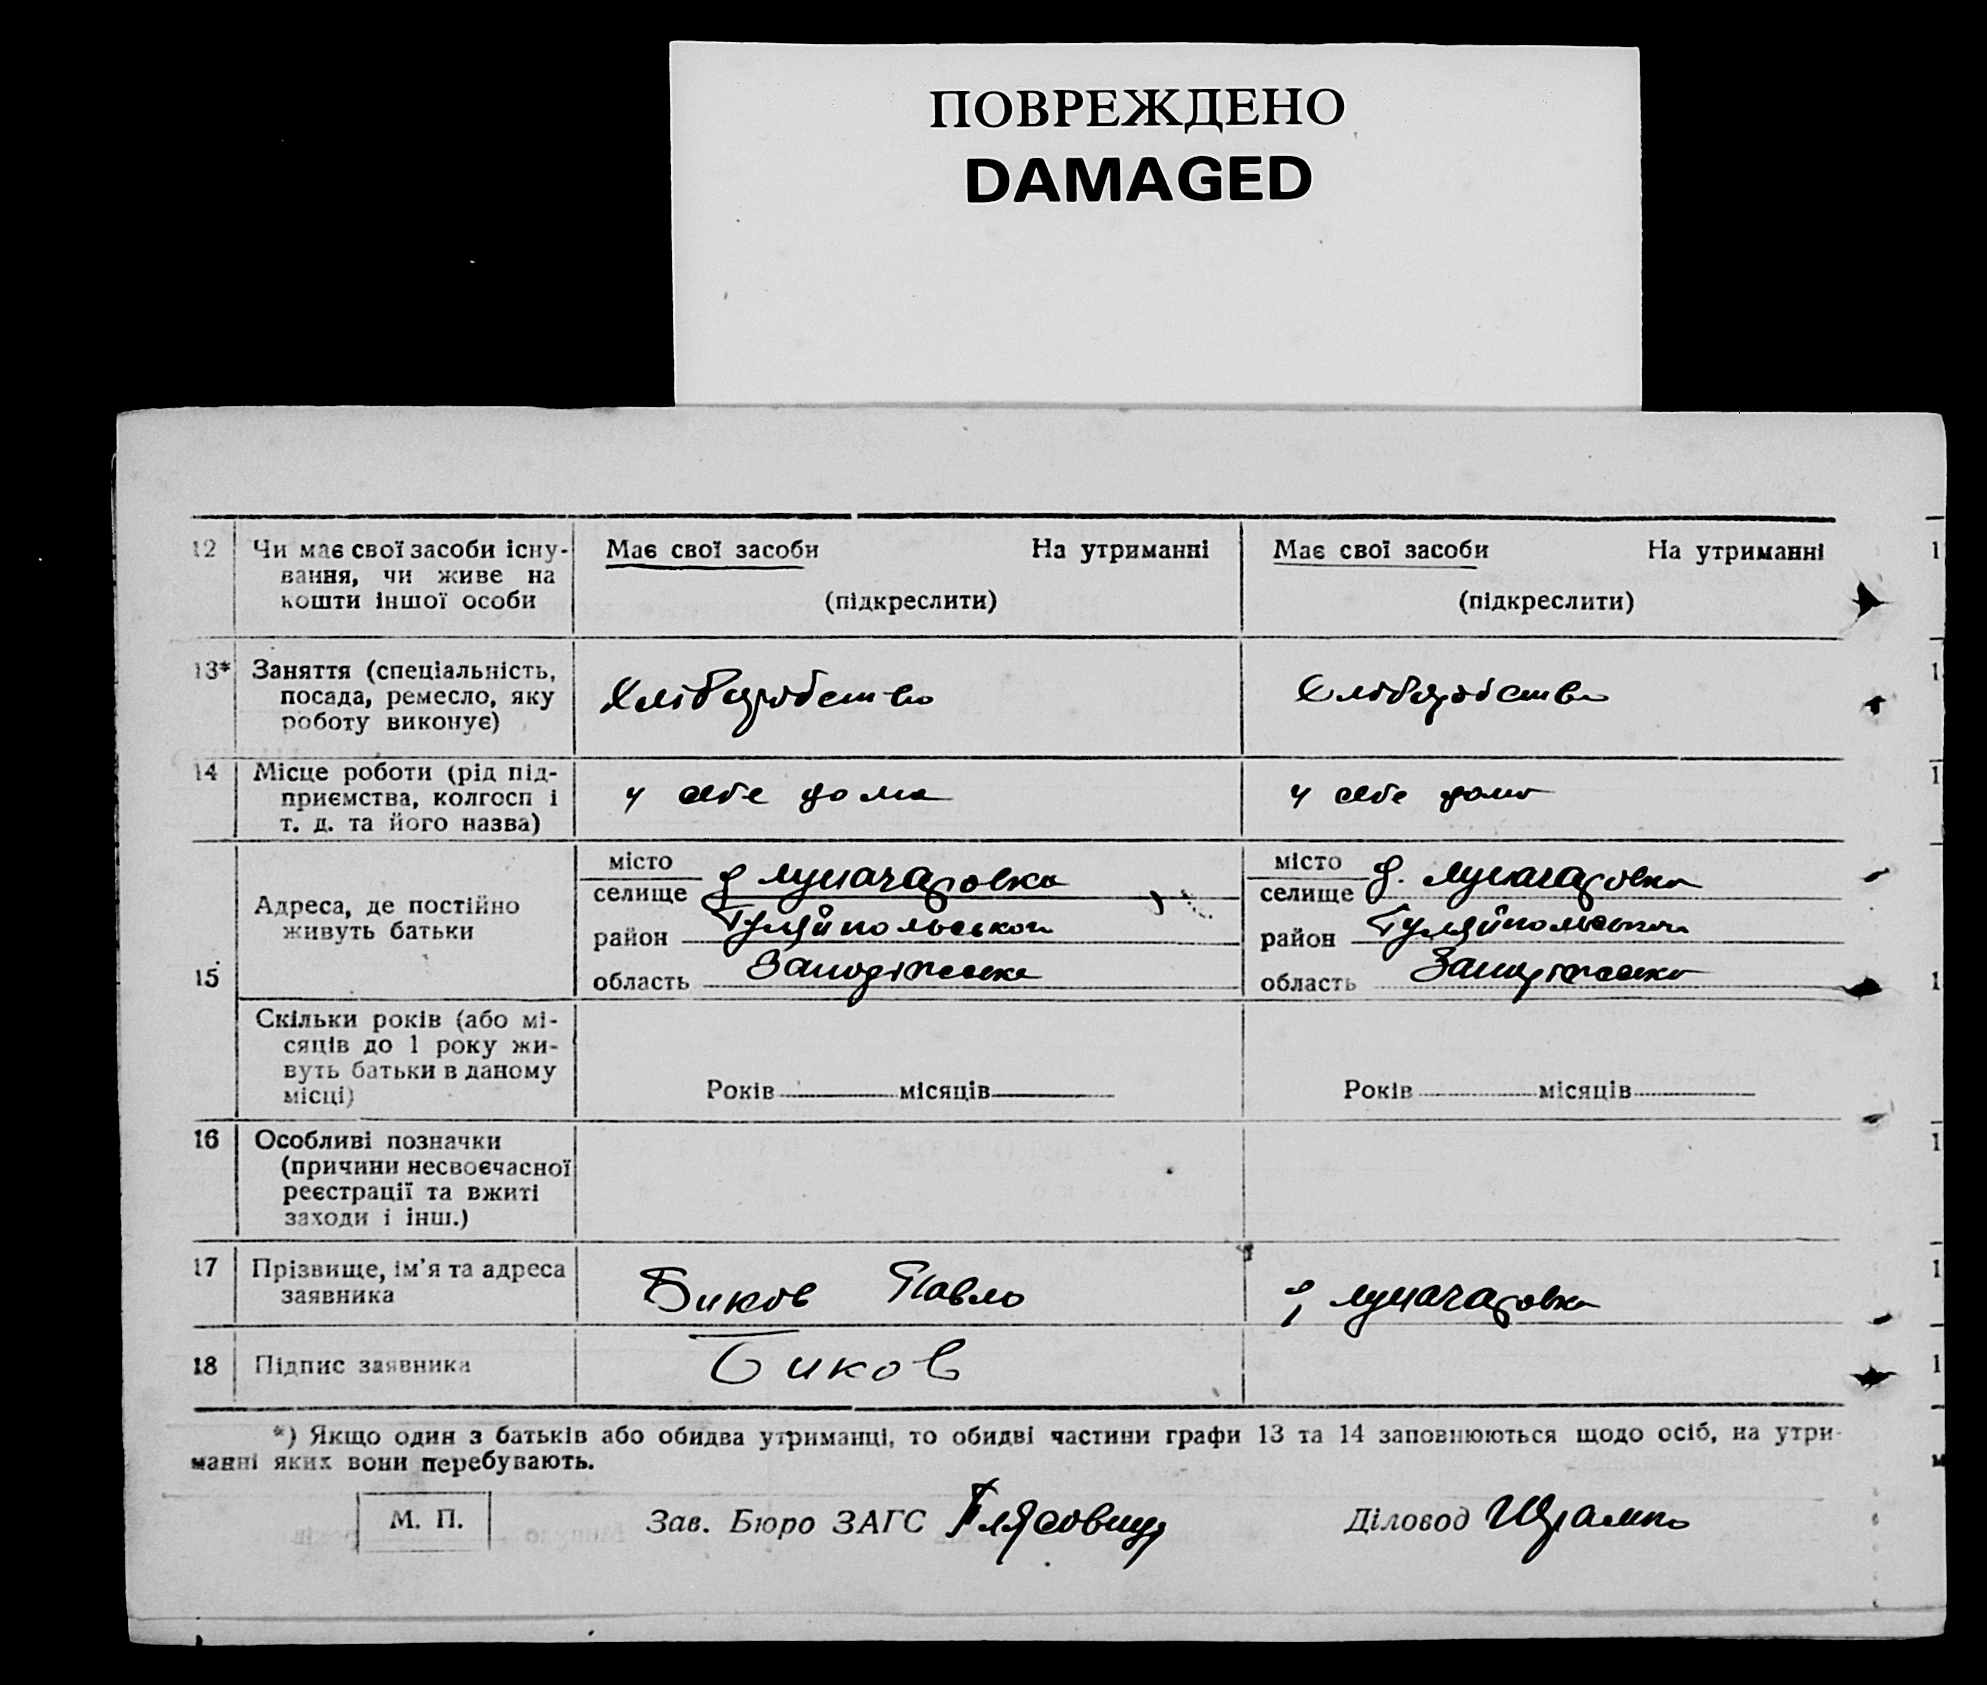 ПОВРЕЖДЕНО
DAMAGED
12 Чи має свої засоби існу-
вання, чи живе на
кошти іншої особи
Має свої засоби На утриманні
(підкреслити)
Має свої засоби На утриманні
(підкреслити)
13* Заняття (спеціальність,
посада, ремесло, яку
роботу виконує)
Хліборобство
Хліборобство
14 Місце роботи (рід під-
приємства, колгосп і
т. д. та його назва)
у себе дома
у себе дома
15
Адреса, де постійно
живуть батьки
місто
селище д Луначаровка
район Гуляйпольської
область Запоріжська
місто
селище д. Луначаровка
район Гуляйпольської
область Запоріжська
Скільки років (або мі-
сяців до 1 року жи-
вуть батьки в даному
місці)
Років місяців
Років місяців
16 Особливі позначки
(причини несвоєчасної
реєстрації та вжиті
заходи і інш.)
17 Прізвище, ім'я та адреса
заявника
Биков Павло
д Луначаровка
18 Підпис заявника
Биков
*) Якщо один з батьків або обидва утриманці, то обидві частини графи 13 та 14 заповнюються щодо осіб, на утри-
манні яких вони перебувають.
М. П.
Зав. Бюро ЗАГС
Діловод